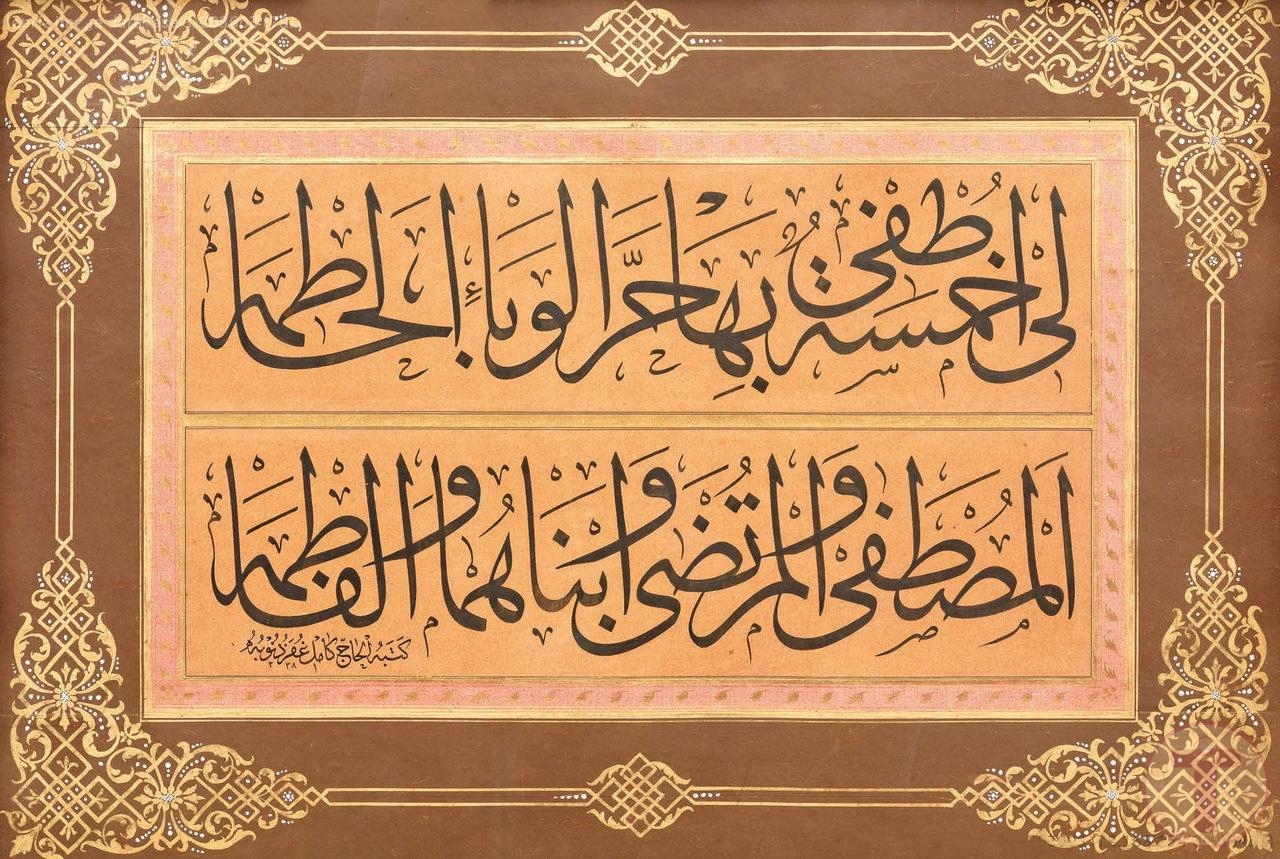 لى خمسة أطفى بها حر الوباء الحاطمه
المصطفى والمرتضى وابناهما والفاطمه
كتبه الحاج كامل غفر ذنوبه